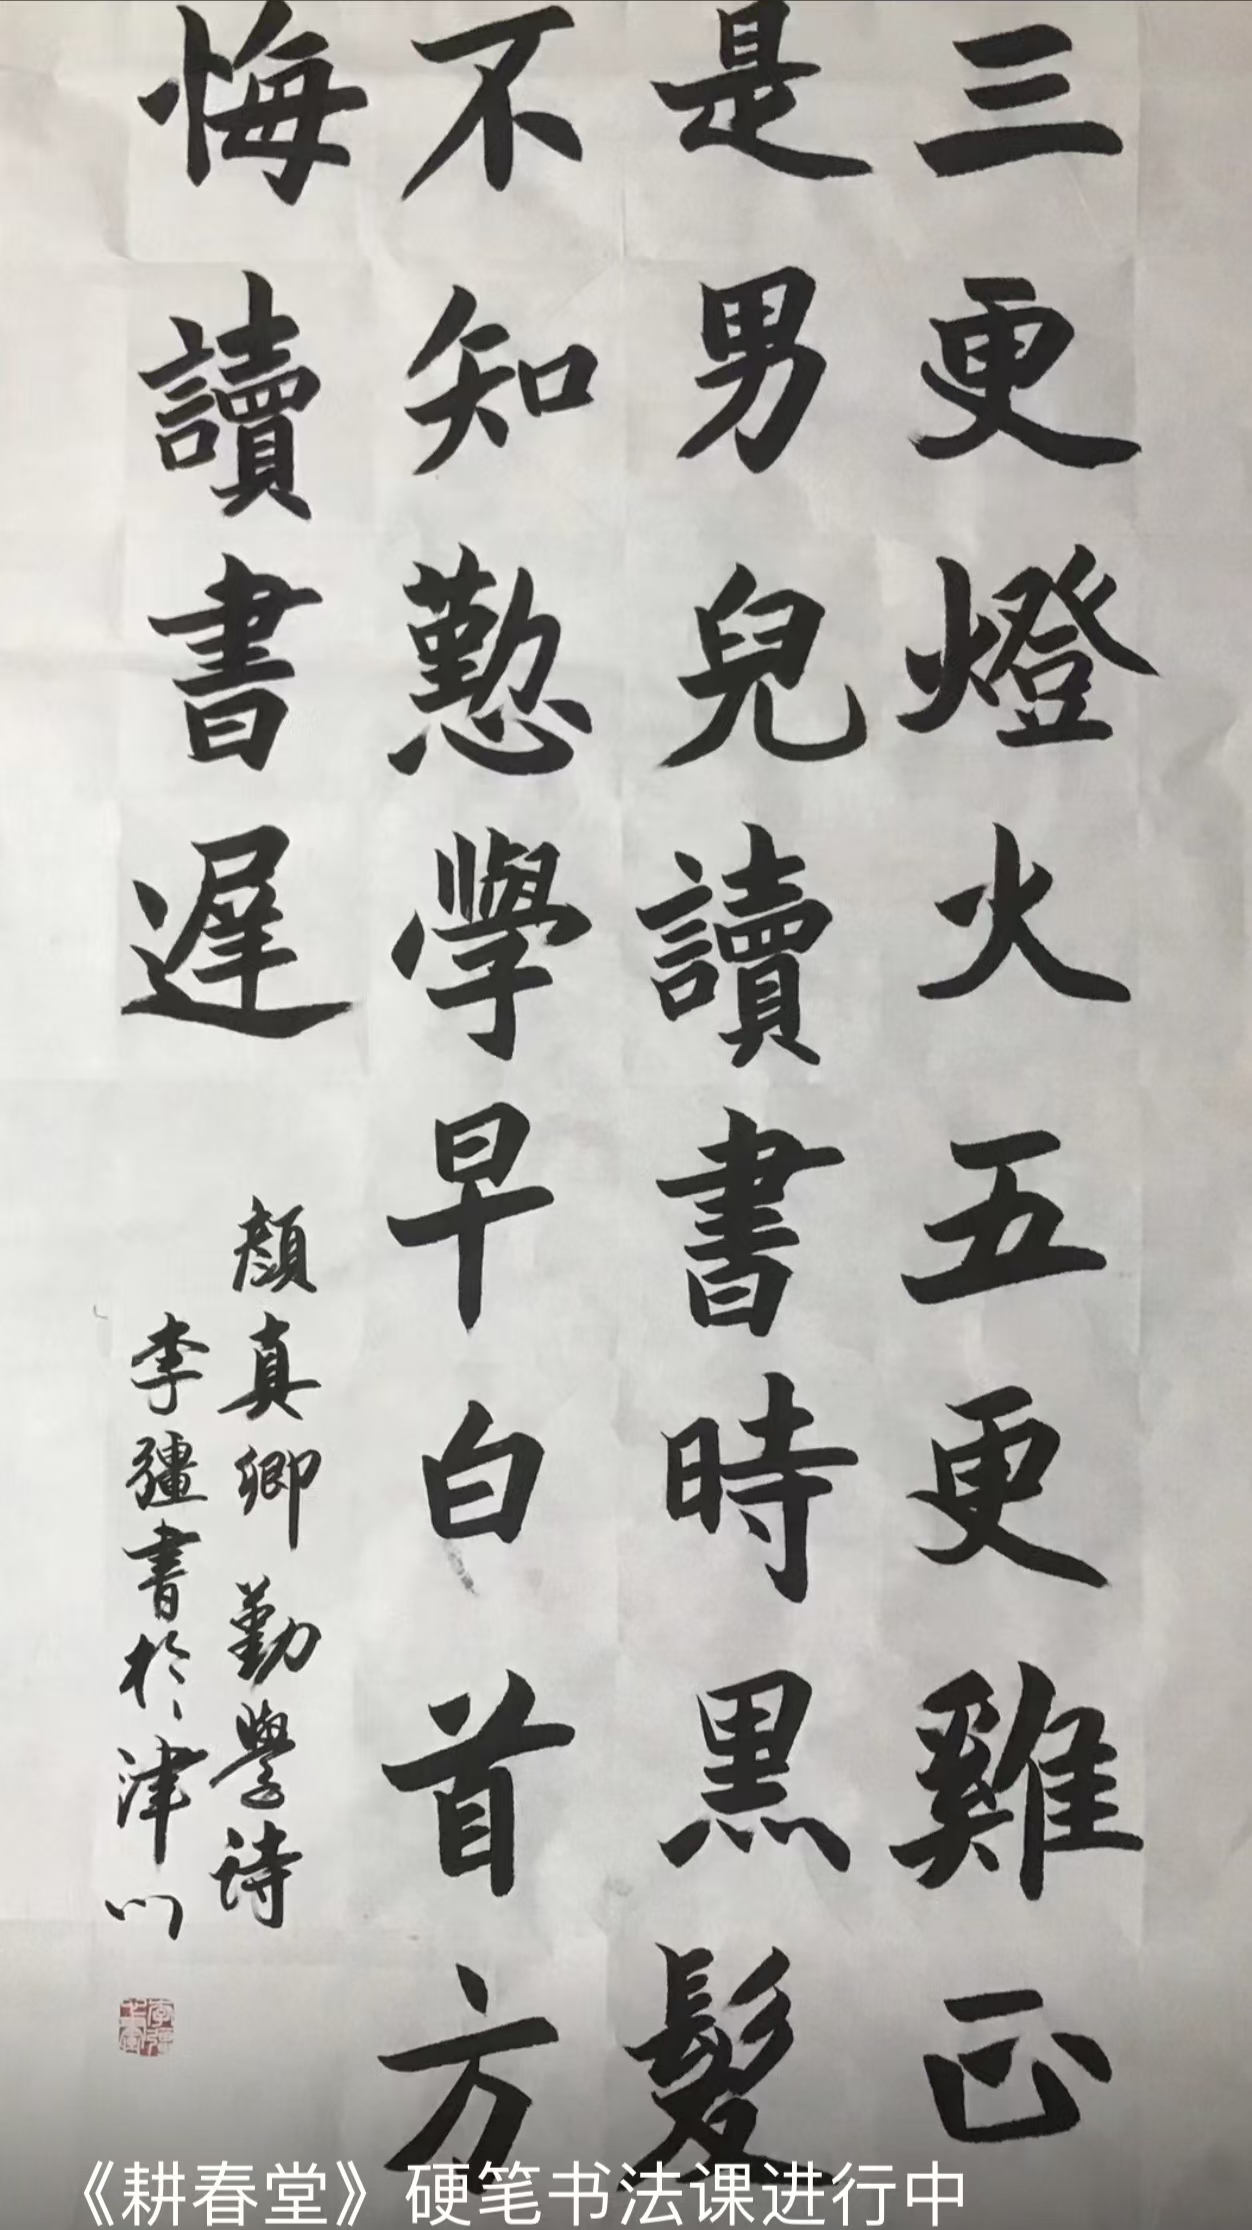 三更燈火五更雞正
是男兒讀書時黑髮
不知懃學早白首方
悔讀書遲
顏真卿勤學诗
李疆書於津门
《耕春堂》硬笔书法课进行中